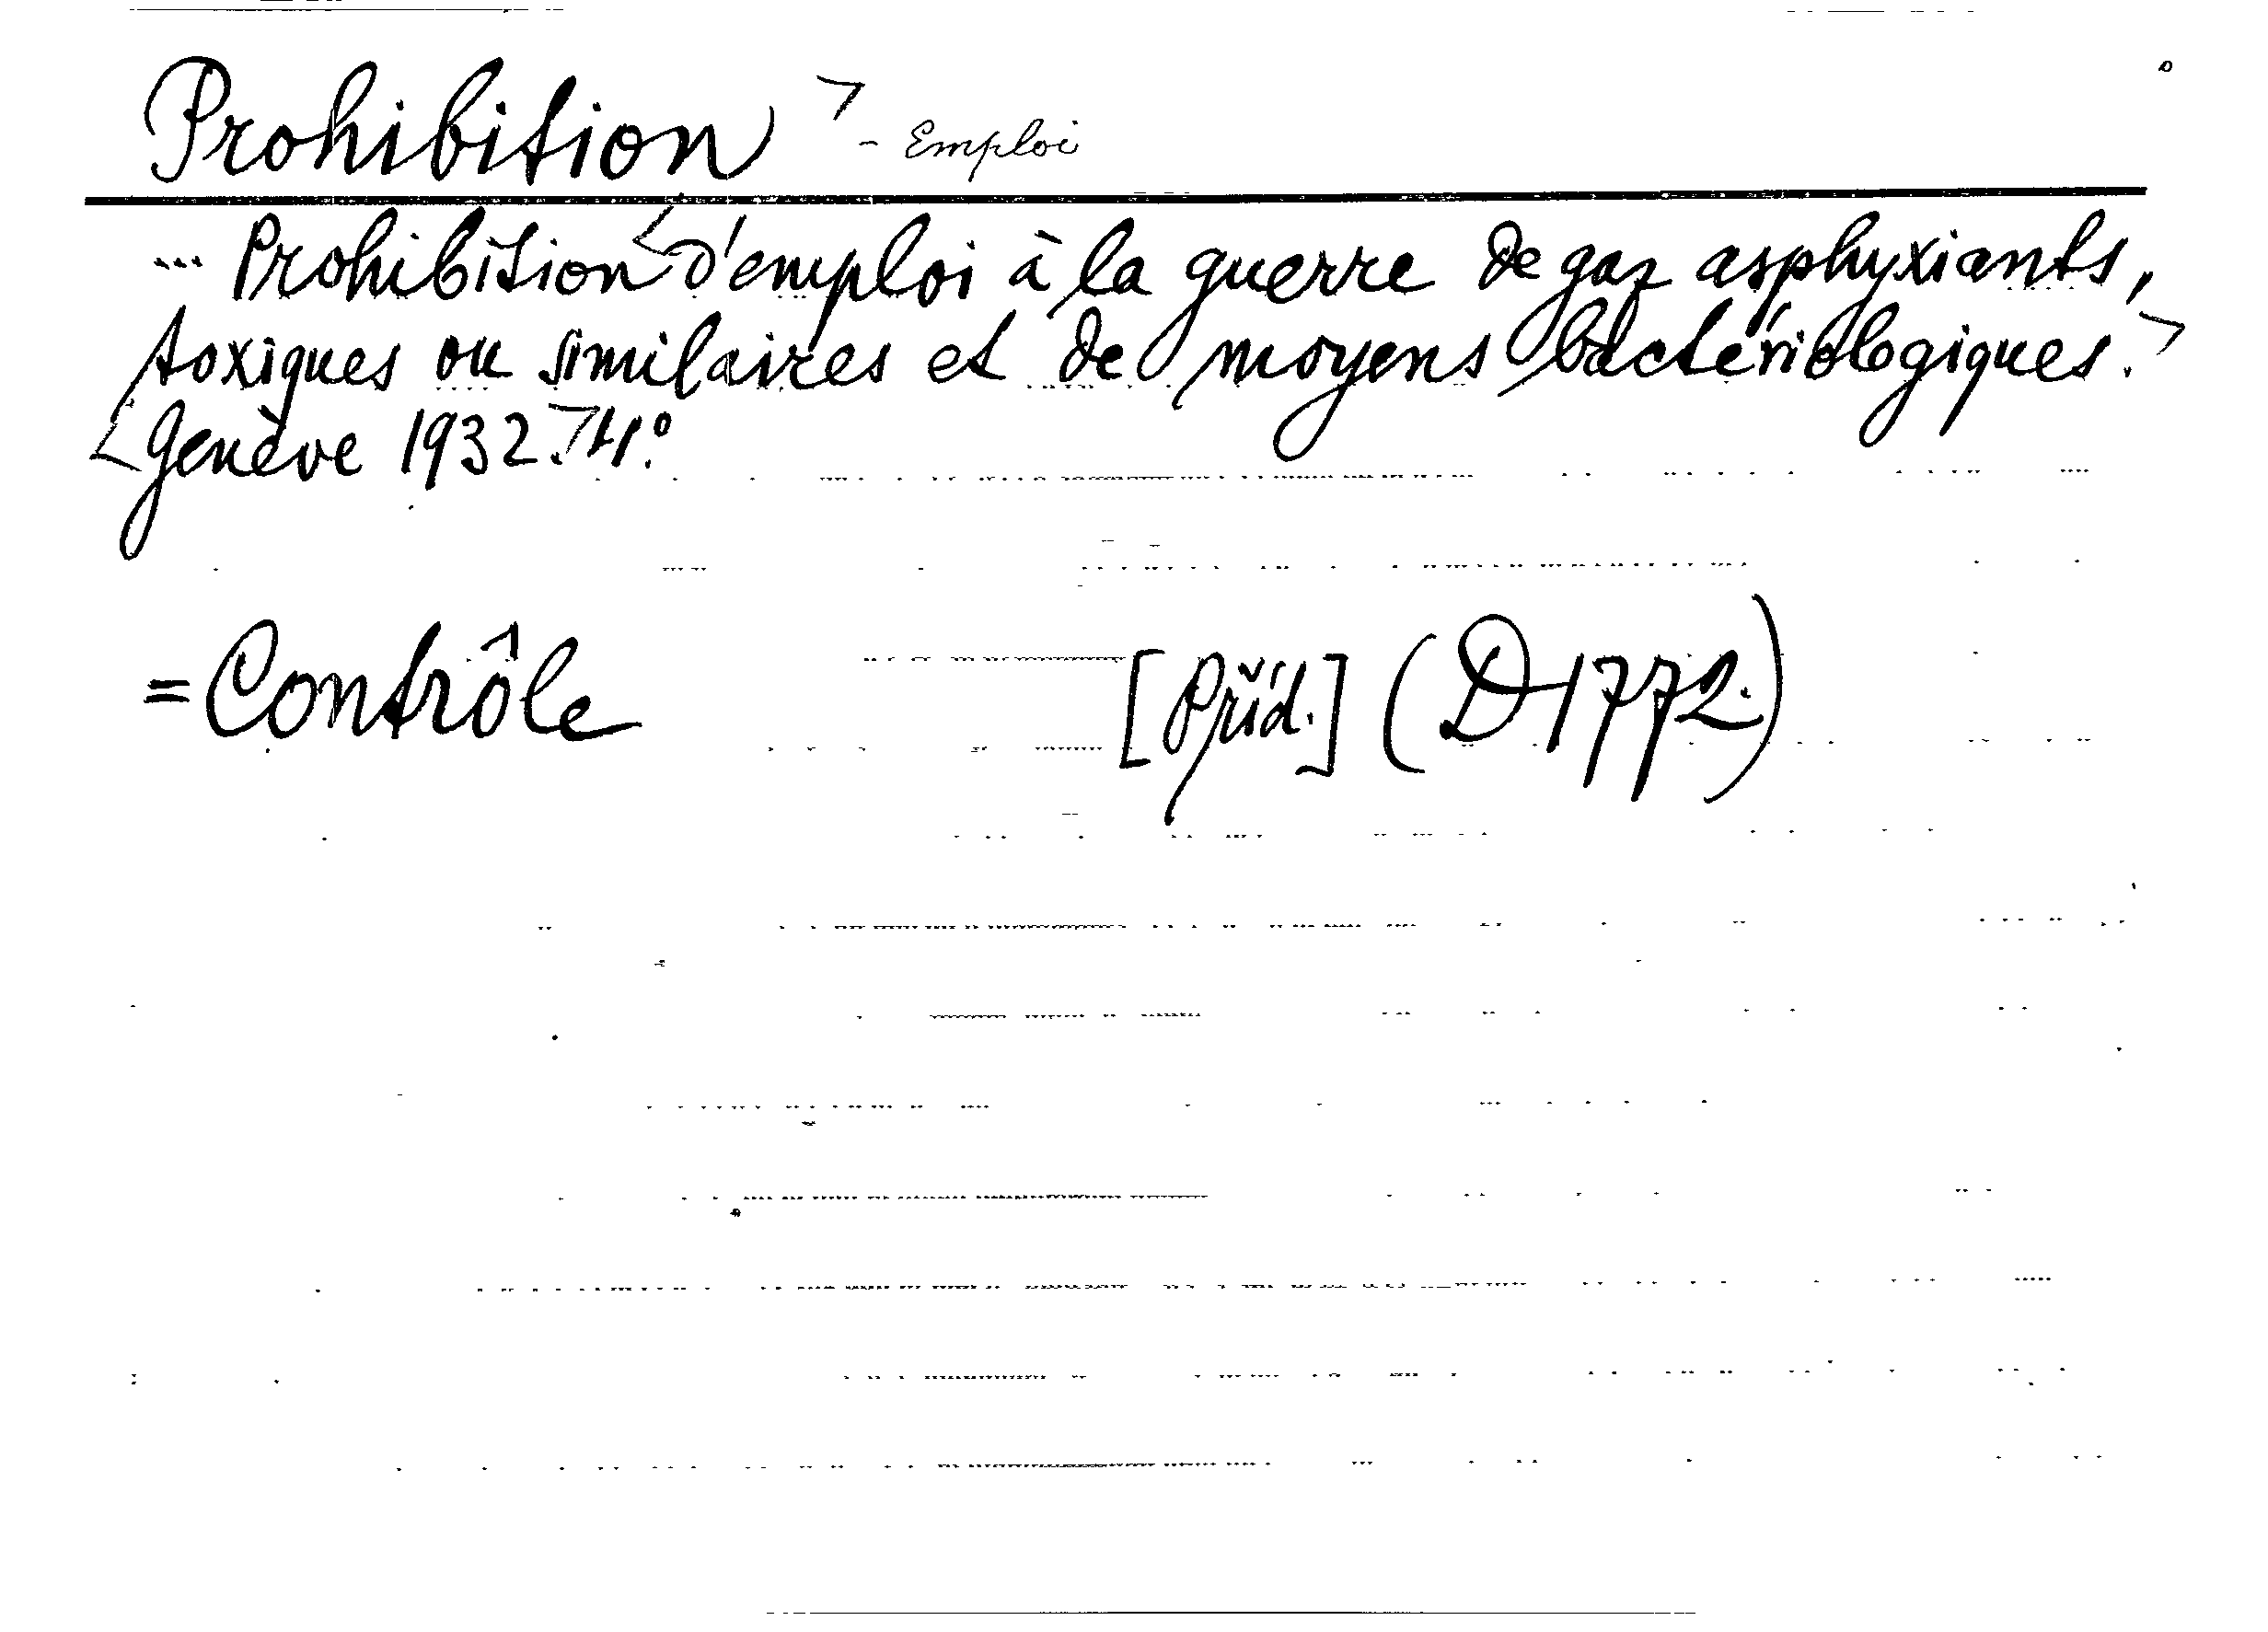 Prohibition - Emploi
... Prohibition d'emploi à la guerre de gaz asphyxiants,
toxiques ou similaires et de moyens bactériologiques.
Genève 1932. 4°.
= Contrôle [Příd.] (D 1772.)